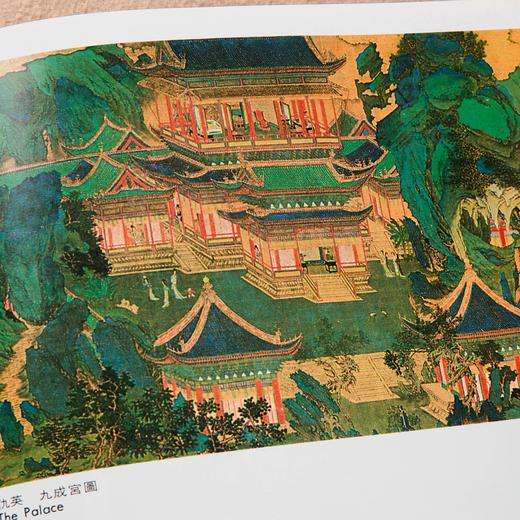 仇英 九成宮圖
The Palace